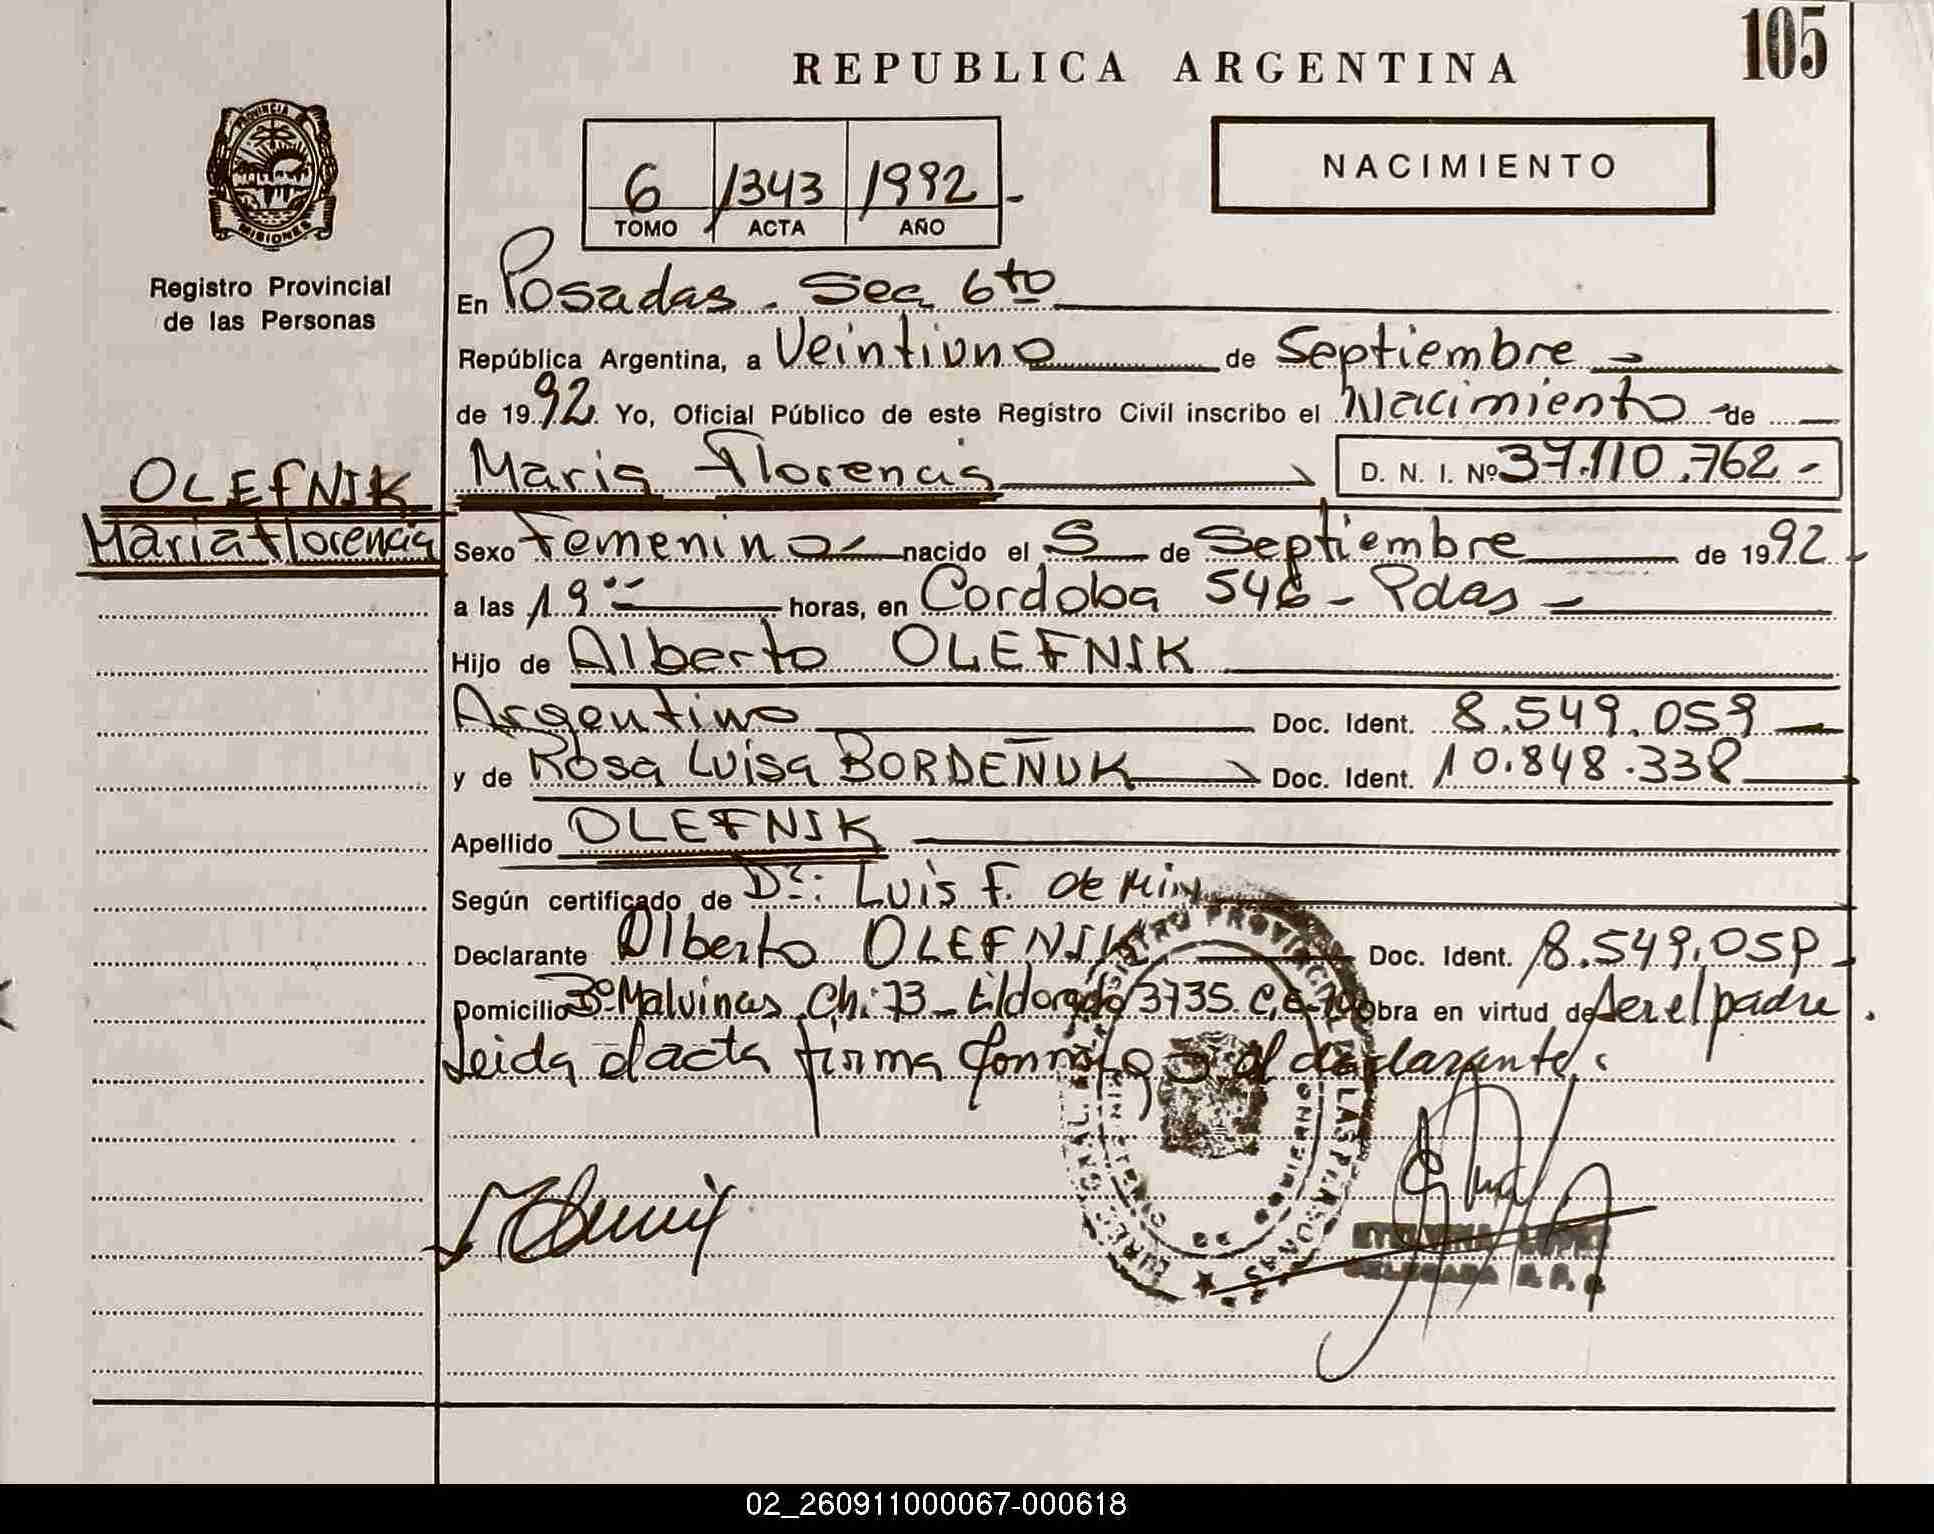 105
REPUBLICA ARGENTINA
PROVINCIA DE
MISIONES
Registro Provincial
de las Personas
6 1343 1992
TOMO ACTA AÑO
NACIMIENTO
En Posadas - Sec. 6to
República Argentina, a Veintiuno de Septiembre
de 1992. Yo, Oficial Público de este Registro Civil inscribo el Nacimiento de
OLEFNIK
Maria Florencia
Maria Florencia D. N. I. Nº 37.110.762 -
Sexo Femenino nacido el 5 de Septiembre de 1992
a las 19 horas, en Cordoba 546 - Pdas
Hijo de Alberto OLEFNIK
Argentino Doc. Ident. 8.549.059
y de Rosa Luisa BORDEÑUK Doc. Ident. 10.848.338
Apellido OLEFNIK
Según certificado de Dr: Luis F. de Min
Declarante Alberto OLEFNIK Doc. Ident. 8.549.059
Domicilio Bº Malvinas Ch: 73 - Eldorado 3735. Obra en virtud de ser el padre
Leida el acta firma conmigo el declarante.
REGISTRO PROVINCIAL DE LAS PERSONAS
02_260911000067-000618